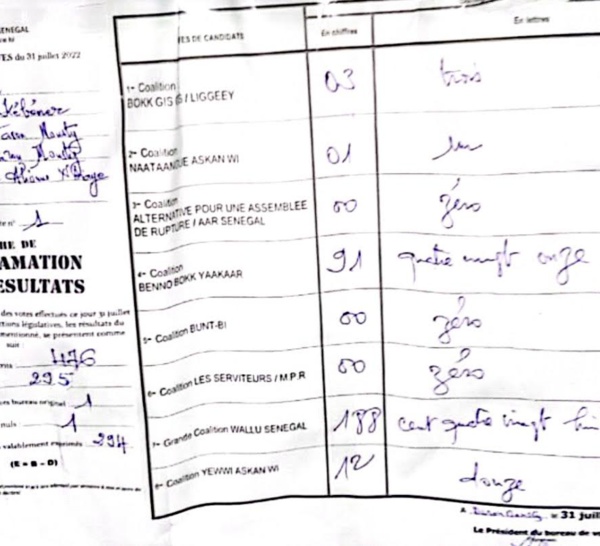 SENEGAL
ES du 31 juillet 2022
Kébémer
N°
1
RE DE
AMATION
ESULTATS
des votes effectués ce jour 31 juillet
ctions législatives, les résultats du
mentionné, se présentent comme
suit :
476
295
bureau original 1
nuls 1
valablement exprimés 294
(E = B - D)
ES DE CANDIDATS En chiffres En lettres
1- Coalition
BOKK GIS GIS / LIGGEEY 03 trois
2- Coalition
NAATAANGUE ASKAN WI 01 un
3- Coalition
ALTERNATIVE POUR UNE ASSEMBLEE
DE RUPTURE / AAR SENEGAL 00 zéro
4- Coalition
BENNO BOKK YAAKAAR 91 quatre vingt onze
5- Coalition BUNT-BI 00 zéro
6- Coalition LES SERVITEURS / M.P.R 00 zéro
7- Grande Coalition WALLU SENEGAL 188 cent quatre vingt
8- Coalition YEWWI ASKAN WI 12 douze
A le 31 juil
Le Président du bureau de vo